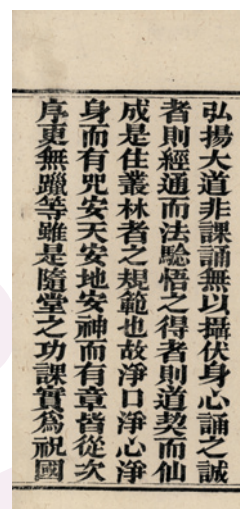 弘揚大道非課誦無以攝伏身心誦之誠
者則經通而法騐悟之得者則道契而仙
成是住叢林者之規範也故淨口淨心淨
身而有咒安天安地安神而有章皆從次
序更無躐等雖是隨堂之功課實為祝國